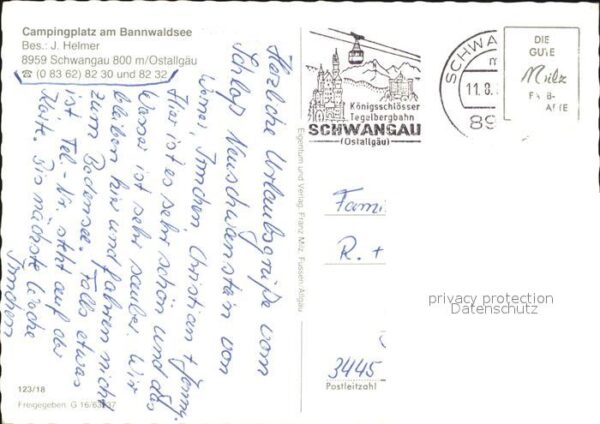 Campingplatz am Bannwaldsee
Bes.: J. Helmer
8959 Schwangau 800 m/Ostallgäu
☎ (0 83 62) 82 30 und 82 32
Herzliche Urlaubsgrüße vom
Schloß Neuschwanstein von
Werner, Irmchen Christian + Jonny.
Hier ist es sehr schön und das
Wasser ist sehr sauber. Wir
bleiben hier und fahren nicht
zum Bodensee. Falls etwas
ist Tel.-Nr. steht auf der
Karte. Bis nächste Woche
Irmchen
123/18
Freigegeben: G 16/
Eigentum und Verlag, Franz Milz, Füssen, Allgäu
Königsschlösser
Tegelbergbahn
SCHWANGAU
(Ostallgäu)
SCHWA
11.8.
89
DIE
GUTE
Milz
Fami
R. +
3445
Postleitzahl
privacy protection
Datenschutz